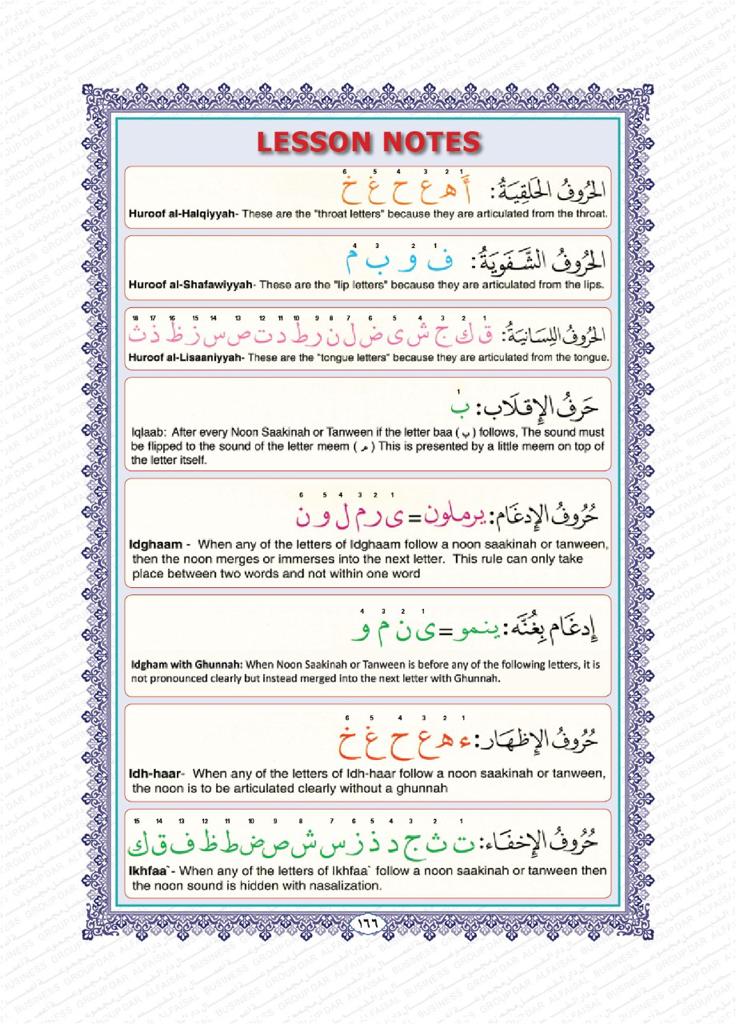 LESSON NOTES
6 5 4 3 2 1
الحُرُوفُ الحَلقِيَةُ: أ ه ع ح غ خ
Huroof al-Halqiyyah- These are the "throat letters" because they are articulated from the throat.
4 3 2 1
الحُرُوفُ الشَّفَوِيَةُ: ف و ب م
Huroof al-Shafawiyyah- These are the "lip letters" because they are articulated from the lips.
18 17 16 15 14 13 12 11 10 9 8 7 6 5 4 3 2 1
الحُرُوفُ اللِسَانِيَةُ: ق ك ج ش ى ض ل ن ر ط د ت ص س ز ظ ذ ث
Huroof al-Lisaaniyyah- These are the "tongue letters" because they are articulated from the tongue.
1
حَرفُ الإِقلَاب: ب
Iqlaab: After every Noon Saakinah or Tanween if the letter baa ( ب ) follows, The sound must
be flipped to the sound of the letter meem ( م ) This is presented by a little meem on top of
the letter itself.
6 5 4 3 2 1
حُرُوفُ الإِدغَام: يرملون = ى ر م ل و ن
Idghaam - When any of the letters of Idghaam follow a noon saakinah or tanween,
then the noon merges or immerses into the next letter. This rule can only take
place between two words and not within one word
4 3 2 1
إِدغَام بِغُنَّه: ينمو = ى ن م و
Idgham with Ghunnah: When Noon Saakinah or Tanween is before any of the following letters, it is
not pronounced clearly but instead merged into the next letter with Ghunnah.
6 5 4 3 2 1
حُرُوفُ الإِظهَار: ء ه ع ح غ خ
Idh-haar- When any of the letters of Idh-haar follow a noon saakinah or tanween,
the noon is to be articulated clearly without a ghunnah
15 14 13 12 11 10 9 8 7 6 5 4 3 2 1
حُرُوفُ الإِخفَاء: ت ث ج د ذ ز س ش ص ض ط ظ ف ق ك
Ikhfaa`- When any of the letters of Ikhfaa` follow a noon saakinah or tanween then
the noon sound is hidden with nasalization.
١٦٦